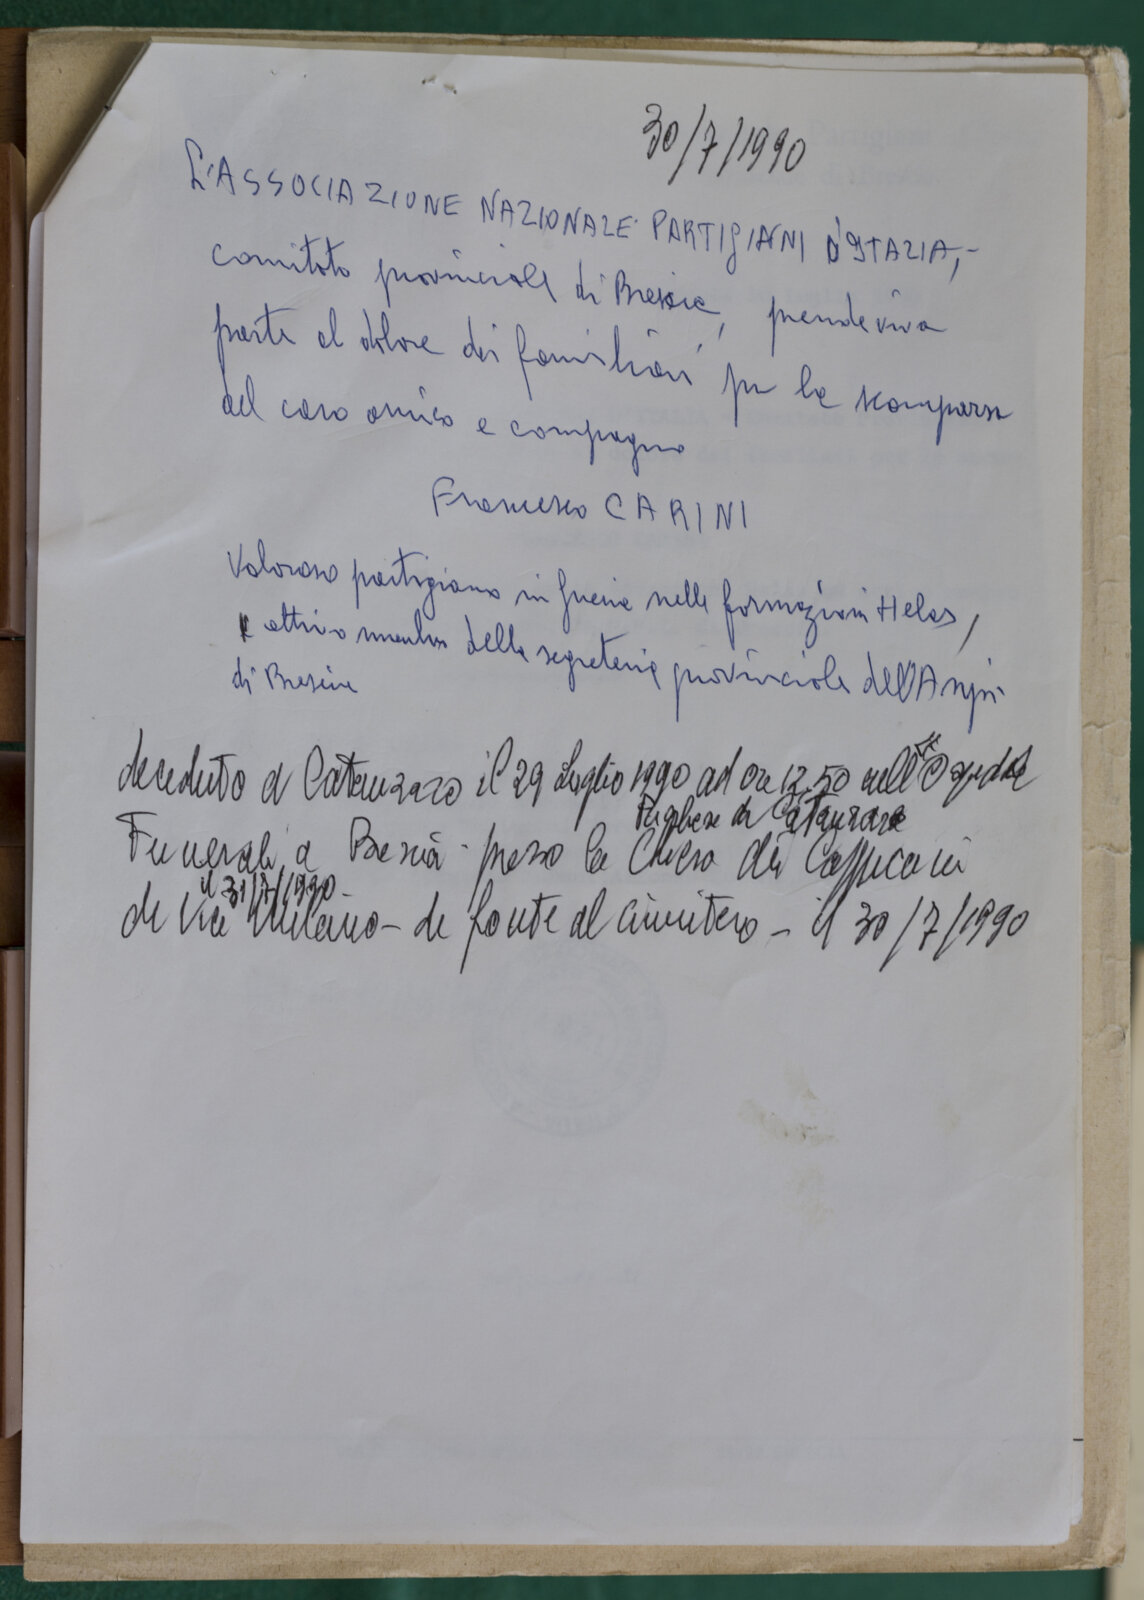 30/7/1990
L'ASSOCIAZIONE NAZIONALE PARTIGIANI D'ITALIA,-
comitato provinciale di Brescia, prende viva
parte al dolore dei familiari per la scomparsa
del caro amico e compagno
Francesco CARINI
Valoroso partigiano in Grecia nelle formazioni Helas,
e attivo membro della segreteria provinciale dell'Anpi
di Brescia
deceduto a Catanzaro il 29 Luglio 1990 ad ore 12.50 nell'Ospedale
Pugliese di Catanzaro
Funerali a Brescia - presso la Chiesa dei Cappuccini
il 31/7/1990-
di Via Milano - di fronte al cimitero - il 30/7/1990